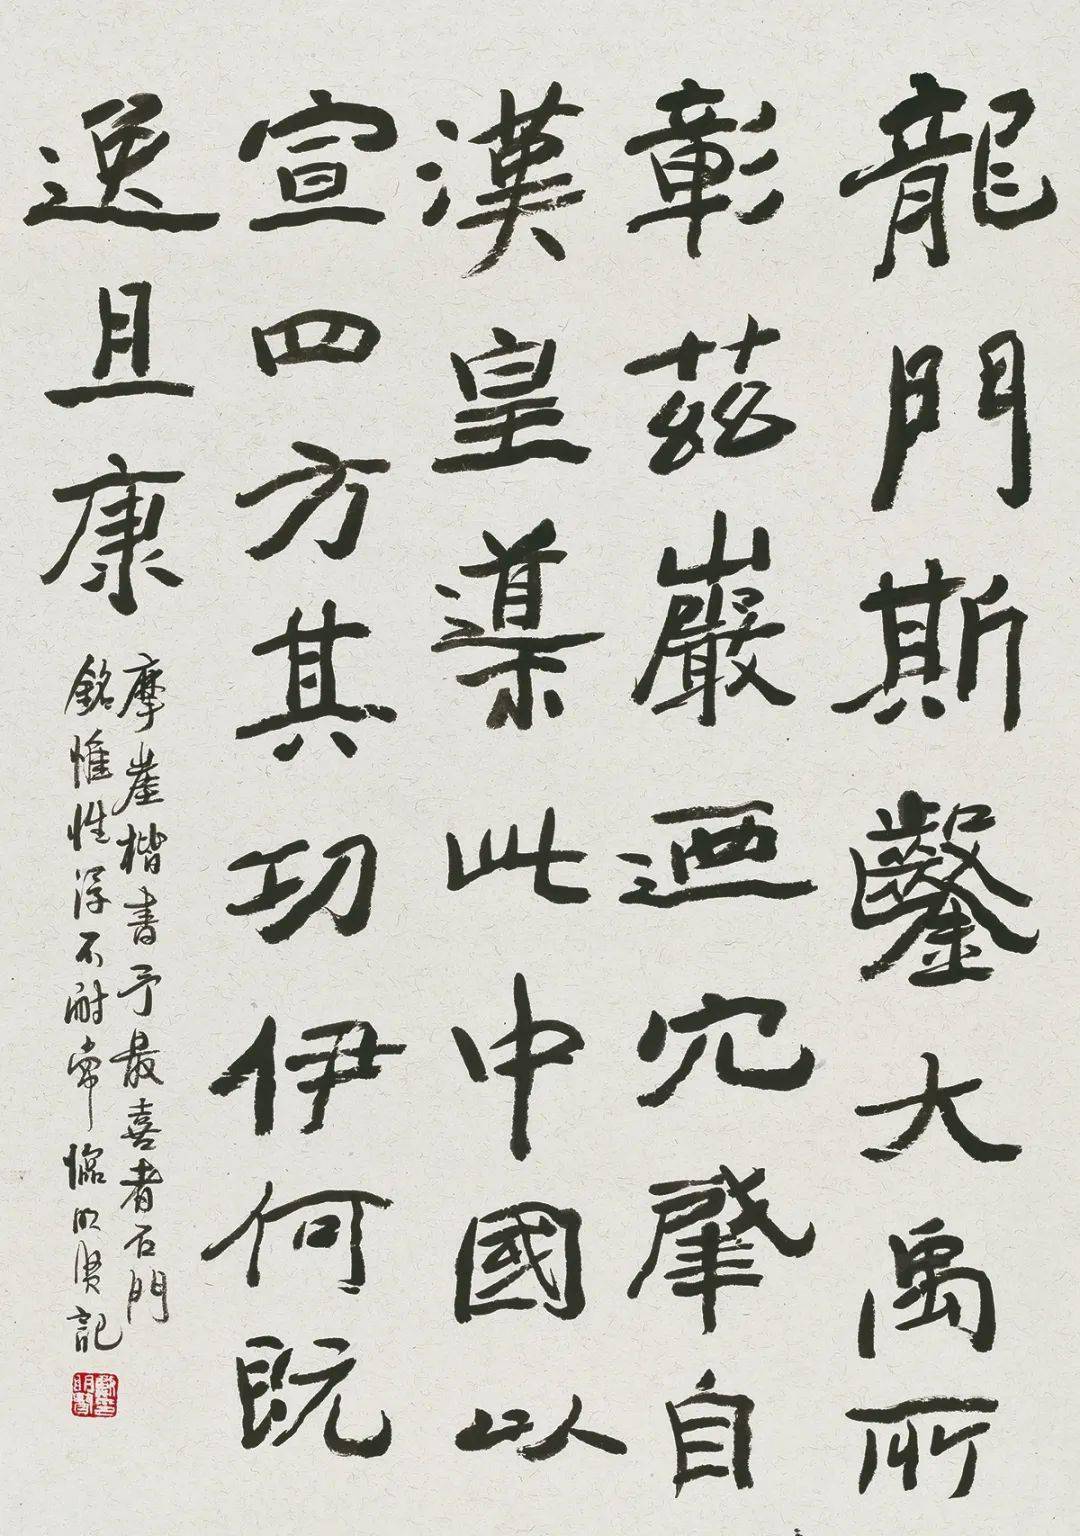 龍門斯鑿大禹所
彰茲巖迺穴肇自
漢皇導此中國以
宣四方其功伊何既
逸且康
摩崖楷書予最喜者石門
銘惟性浮不耐常臨明賢記